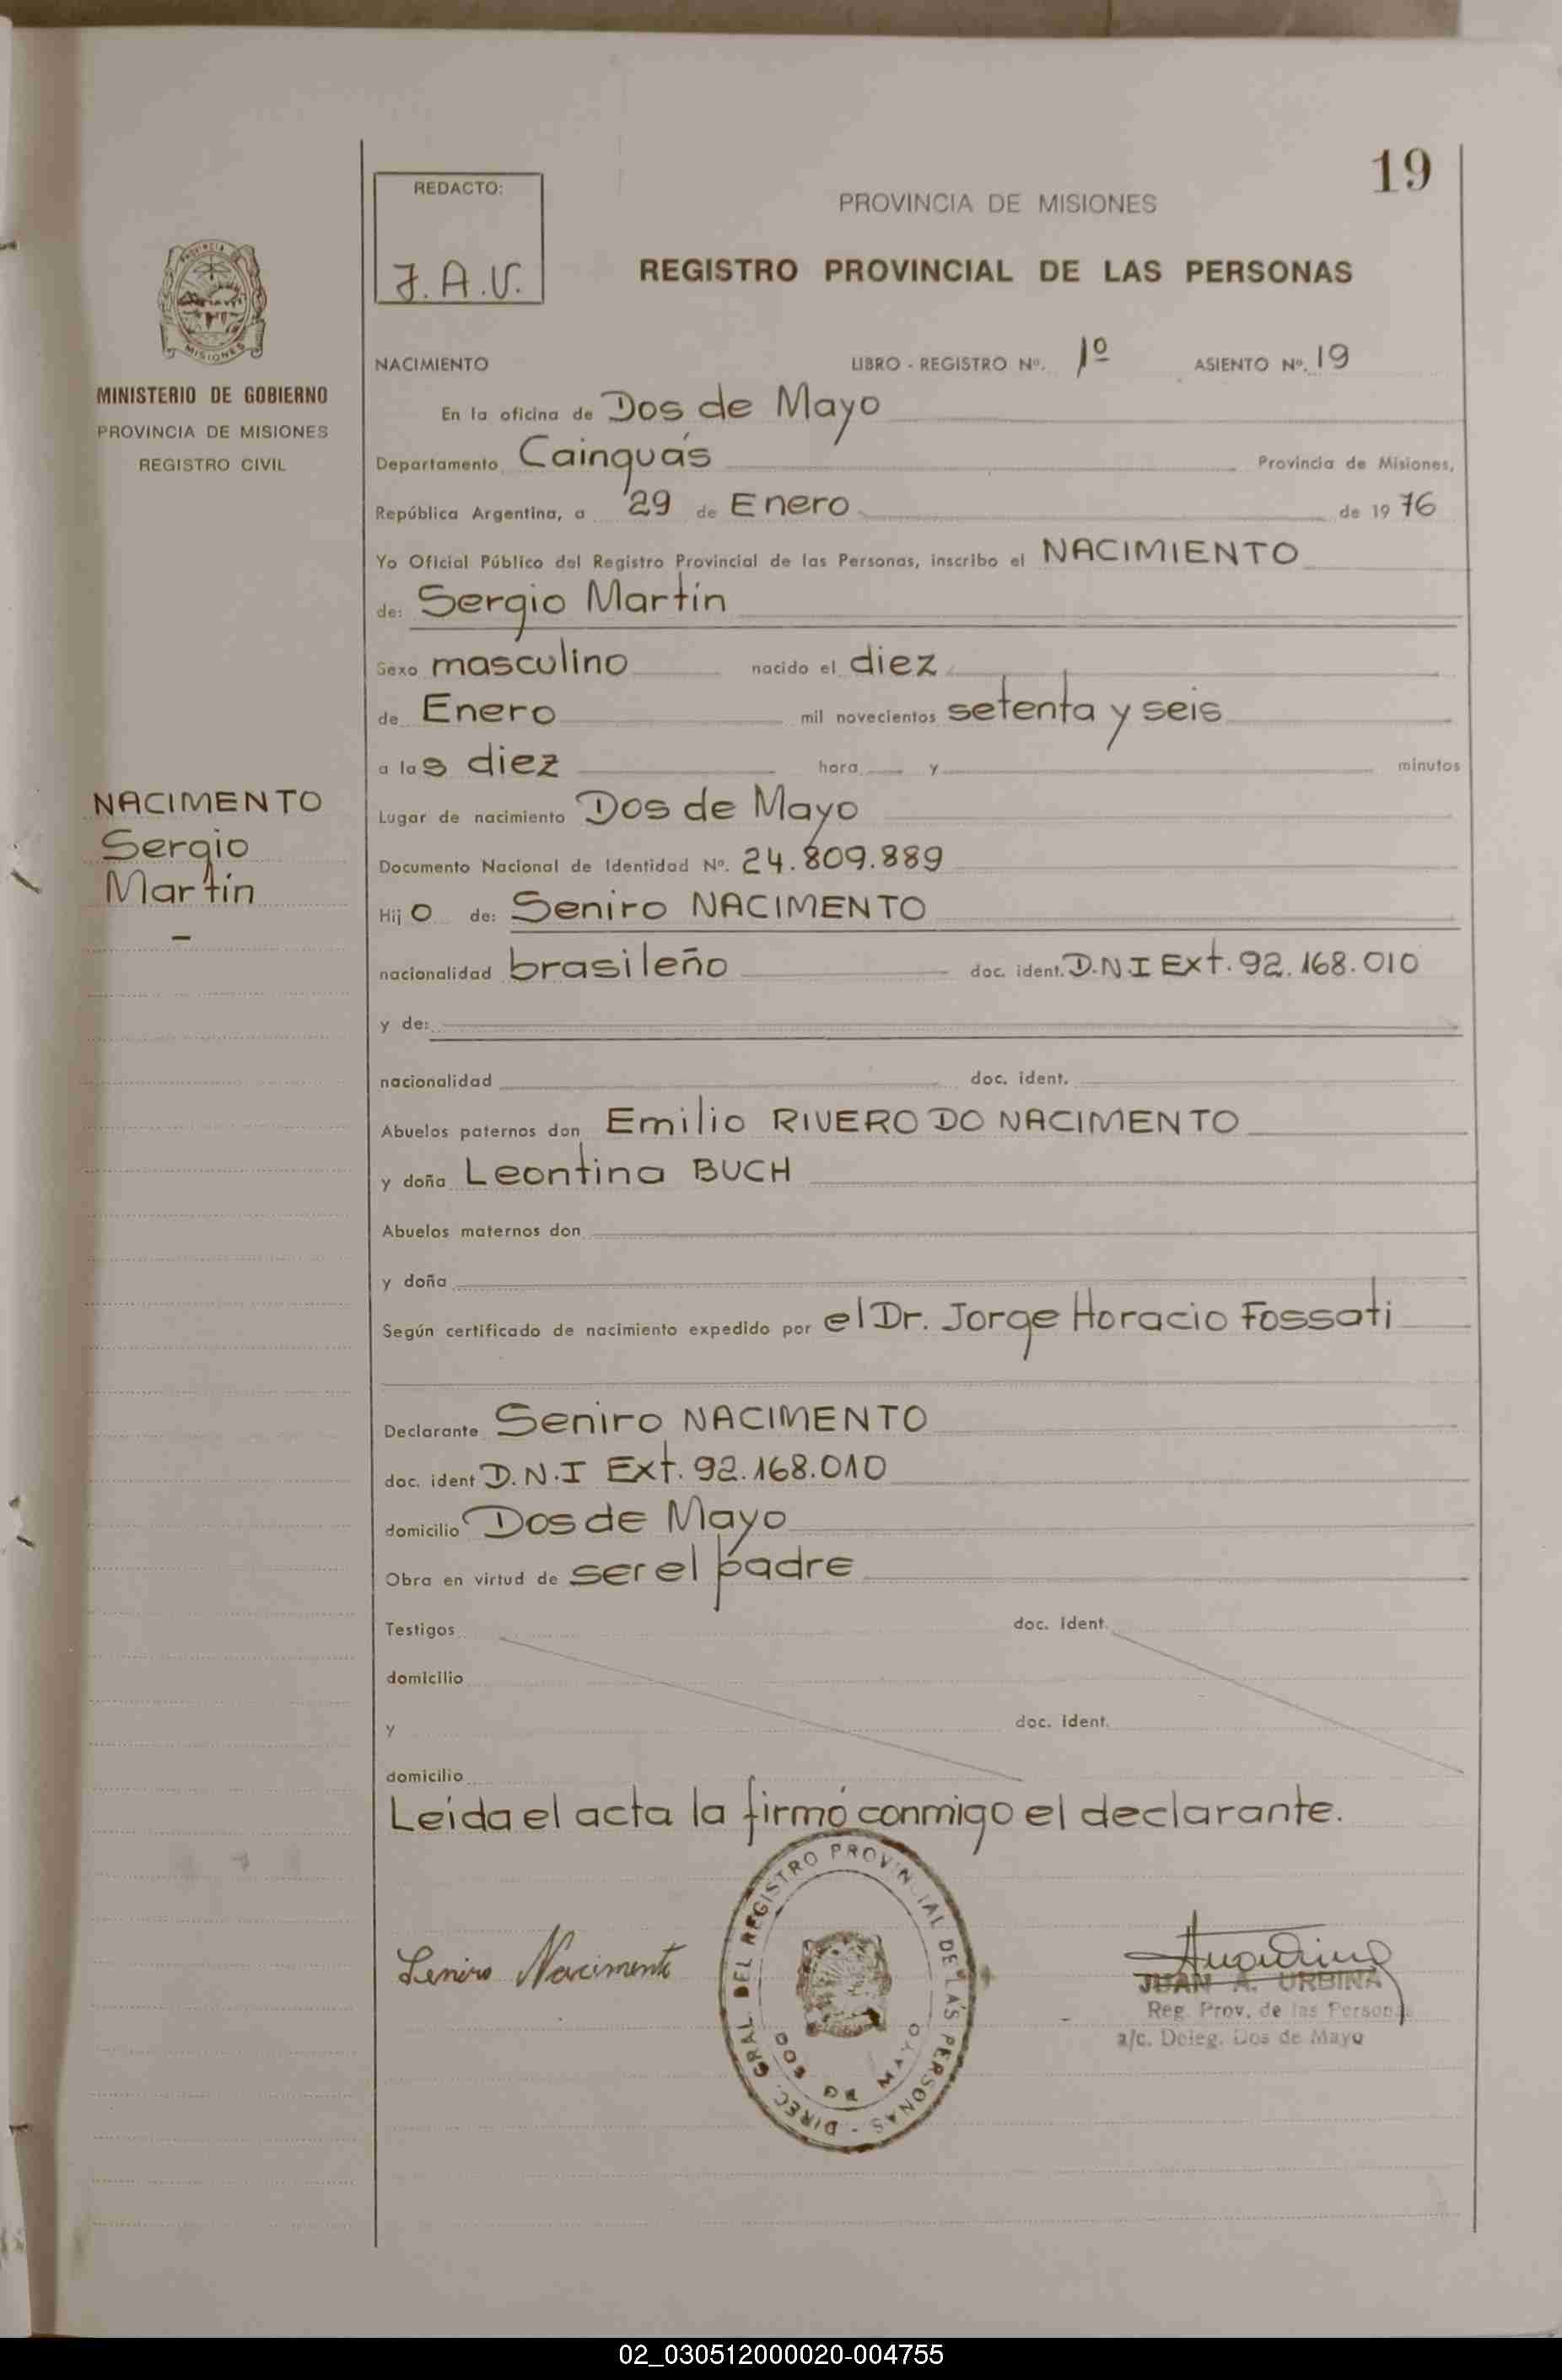 19
REDACTO:
J.A.V.
PROVINCIA DE MISIONES
REGISTRO PROVINCIAL DE LAS PERSONAS
PROVINCIA DE
MISIONES
MINISTERIO DE GOBIERNO
PROVINCIA DE MISIONES
REGISTRO CIVIL
NACIMIENTO LIBRO - REGISTRO Nº. 1º ASIENTO Nº. 19
En la oficina de Dos de Mayo
Departamento Cainguás Provincia de Misiones,
República Argentina, a 29 de Enero de 1976
Yo Oficial Público del Registro Provincial de las Personas, inscribo el NACIMIENTO
de: Sergio Martín
Sexo masculino nacido el diez
de Enero mil novecientos setenta y seis
a las diez hora y minutos
NACIMENTO
Sergio
Martín
Lugar de nacimiento Dos de Mayo
Documento Nacional de Identidad Nº. 24.809.889
Hijo de: Seniro NACIMENTO
nacionalidad brasileño doc. ident. D.N.I Ext. 92.168.010
y de:
nacionalidad doc. ident.
Abuelos paternos don Emilio RIVERO DO NACIMENTO
y doña Leontina BUCH
Abuelos maternos don
y doña
Según certificado de nacimiento expedido por el Dr. Jorge Horacio Fossati
Declarante Seniro NACIMENTO
doc. ident D.N.I Ext. 92.168.010
domicilio Dos de Mayo
Obra en virtud de ser el padre
Testigos doc. ident.
domicilio
y doc. ident.
domicilio
Leída el acta la firmó conmigo el declarante.
DIREC. GRAL. DEL REGISTRO PROVINCIAL DE LAS PERSONAS -
DOS DE MAYO
Seniro Nacimento
JUAN A. URBINA
Reg. Prov. de las Personas
a/c. Deleg. Dos de Mayo
02_030512000020-004755